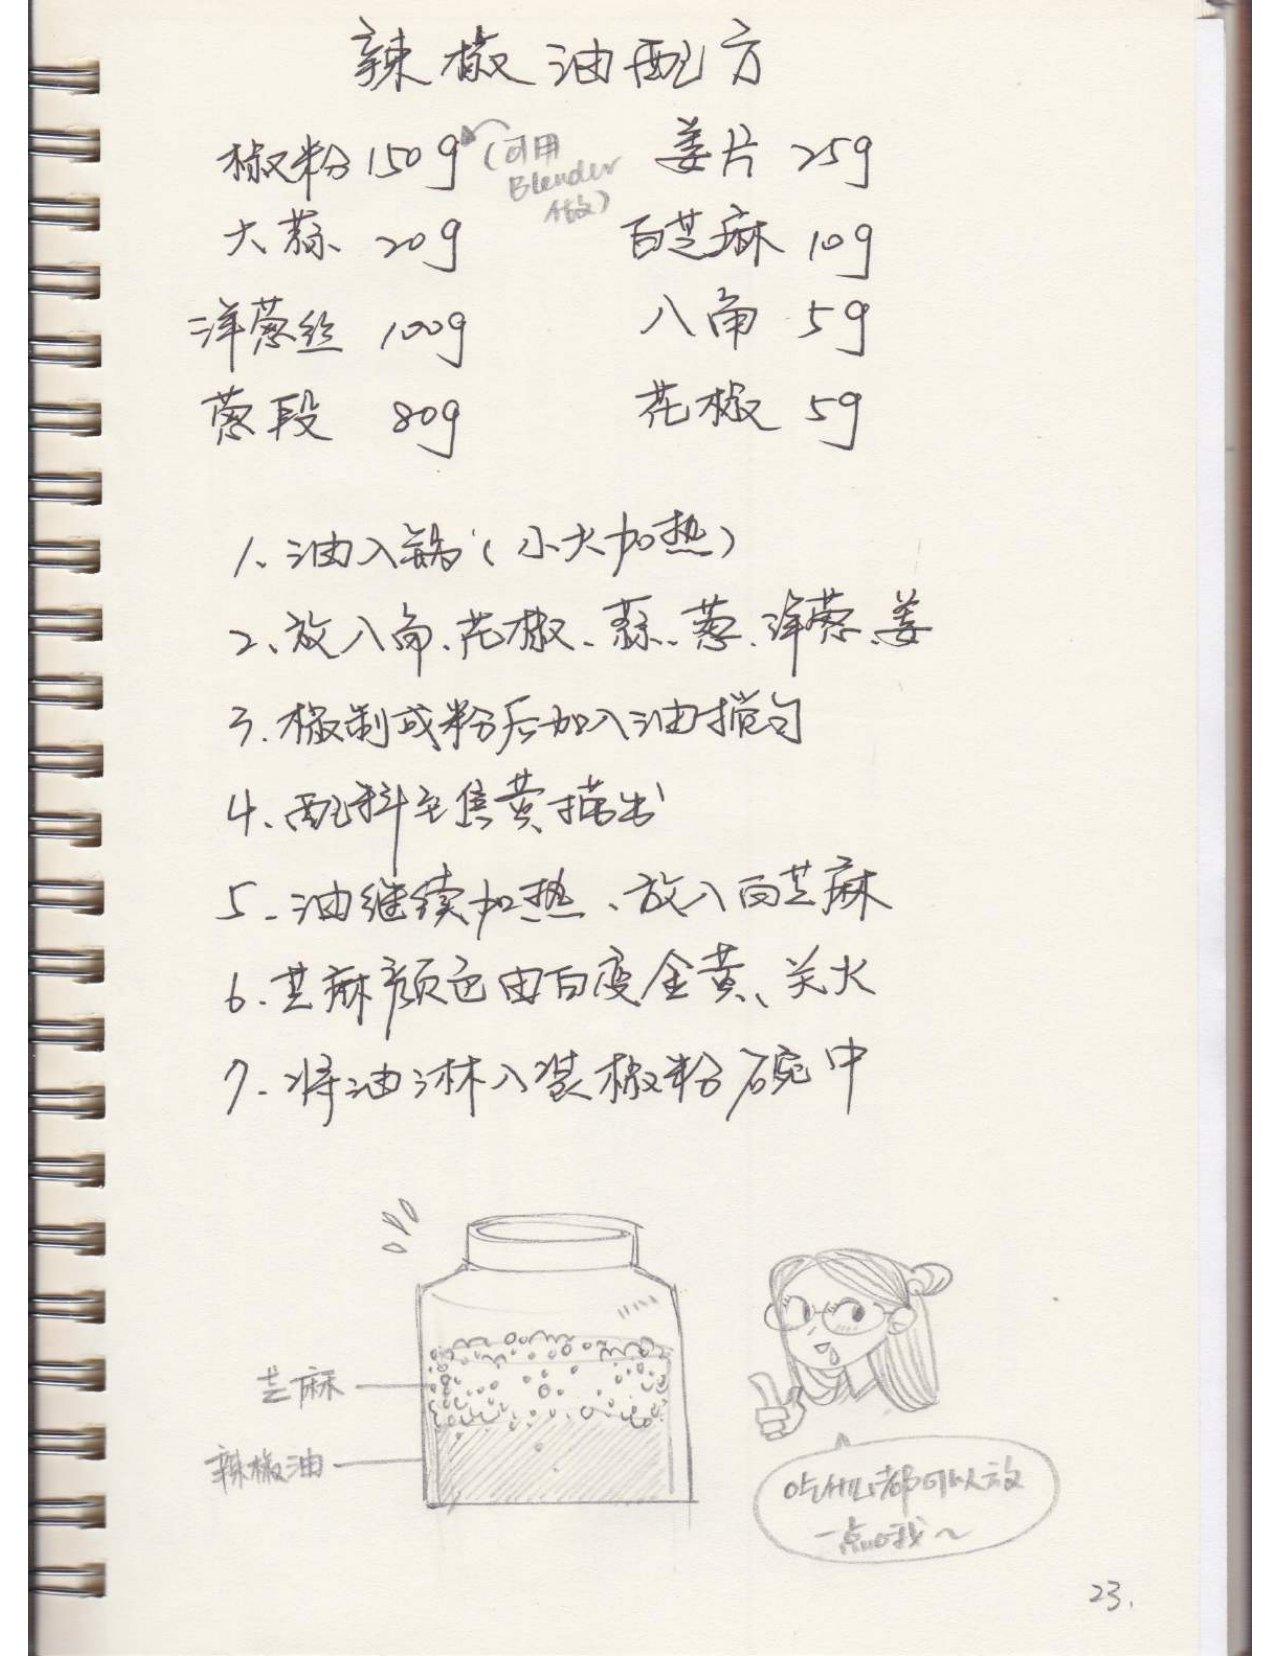 辣椒油配方
椒粉 150g (可用 Blender 做)
姜片 25g
大蒜 20g
白芝麻 10g
洋葱丝 100g
八角 5g
葱段 80g
花椒 5g
1、油入锅(小火加热)
2、放八角、花椒、蒜、葱、洋葱、姜
3、椒制成粉后加入油搅匀
4、配料至焦黄捞出
5、油继续加热、放入白芝麻
6、芝麻颜色由白变金黄、关火
7、将油淋入装椒粉碗中
芝麻
辣椒油
吃什么都可以放
一点哦～
23.